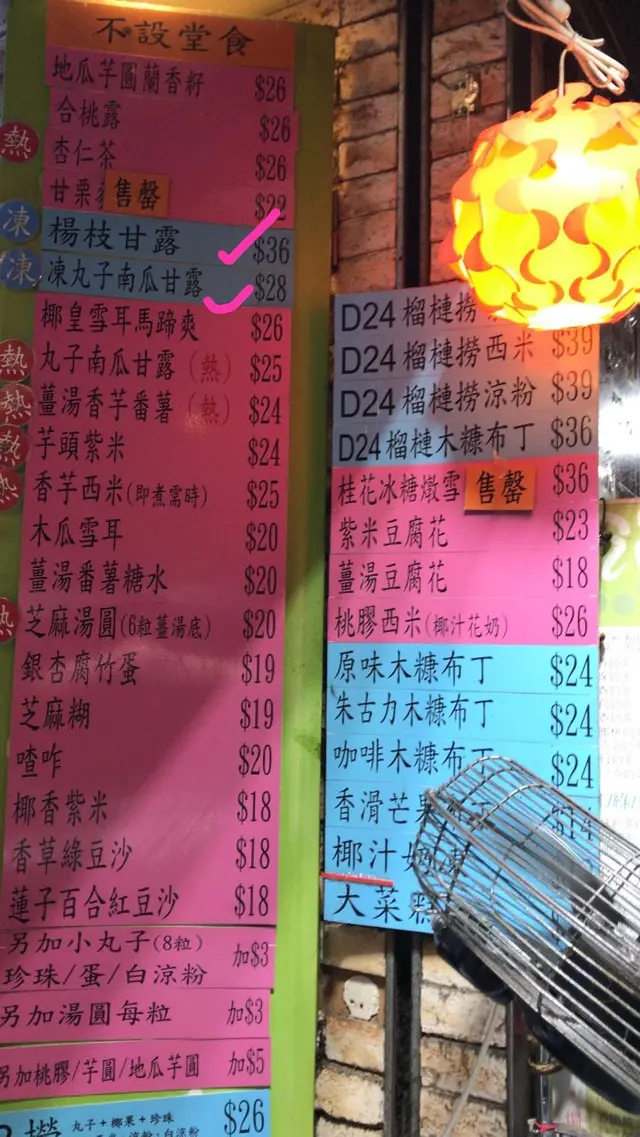 不設堂食
地瓜芋圓蘭香籽 $26
合桃露 $26
熱
杏仁茶 $26
甘栗 售罄 $22
凍 楊枝甘露 $36
凍 凍丸子南瓜甘露 $28
椰皇雪耳馬蹄爽 $26
熱 丸子南瓜甘露(熱) $25
熱 薑湯香芋番薯(熱) $24
熱 芋頭紫米 $24
熱 香芋西米(即煮需時) $25
木瓜雪耳 $20
薑湯番薯糖水 $20
熱 芝麻湯圓(6粒薑湯底) $20
銀杏腐竹蛋 $19
芝麻糊 $19
喳咋 $20
椰香紫米 $18
香草綠豆沙 $18
蓮子百合紅豆沙 $18
另加小丸子(8粒)
珍珠/蛋/白涼粉 加$3
另加湯圓每粒 加$3
另加桃膠/芋圓/地瓜芋圓 加$5
撈 丸子+椰果+珍珠 $26
D24榴槤撈
D24榴槤撈西米 $39
D24榴槤撈涼粉 $39
D24榴槤木糠布丁 $36
桂花冰糖燉雪 售罄 $36
紫米豆腐花 $23
薑湯豆腐花 $18
桃膠西米(椰汁花奶) $26
原味木糠布丁 $24
朱古力木糠布丁 $24
咖啡木糠布丁 $24
香滑芒果布丁 $14
椰汁奶凍
大菜糕